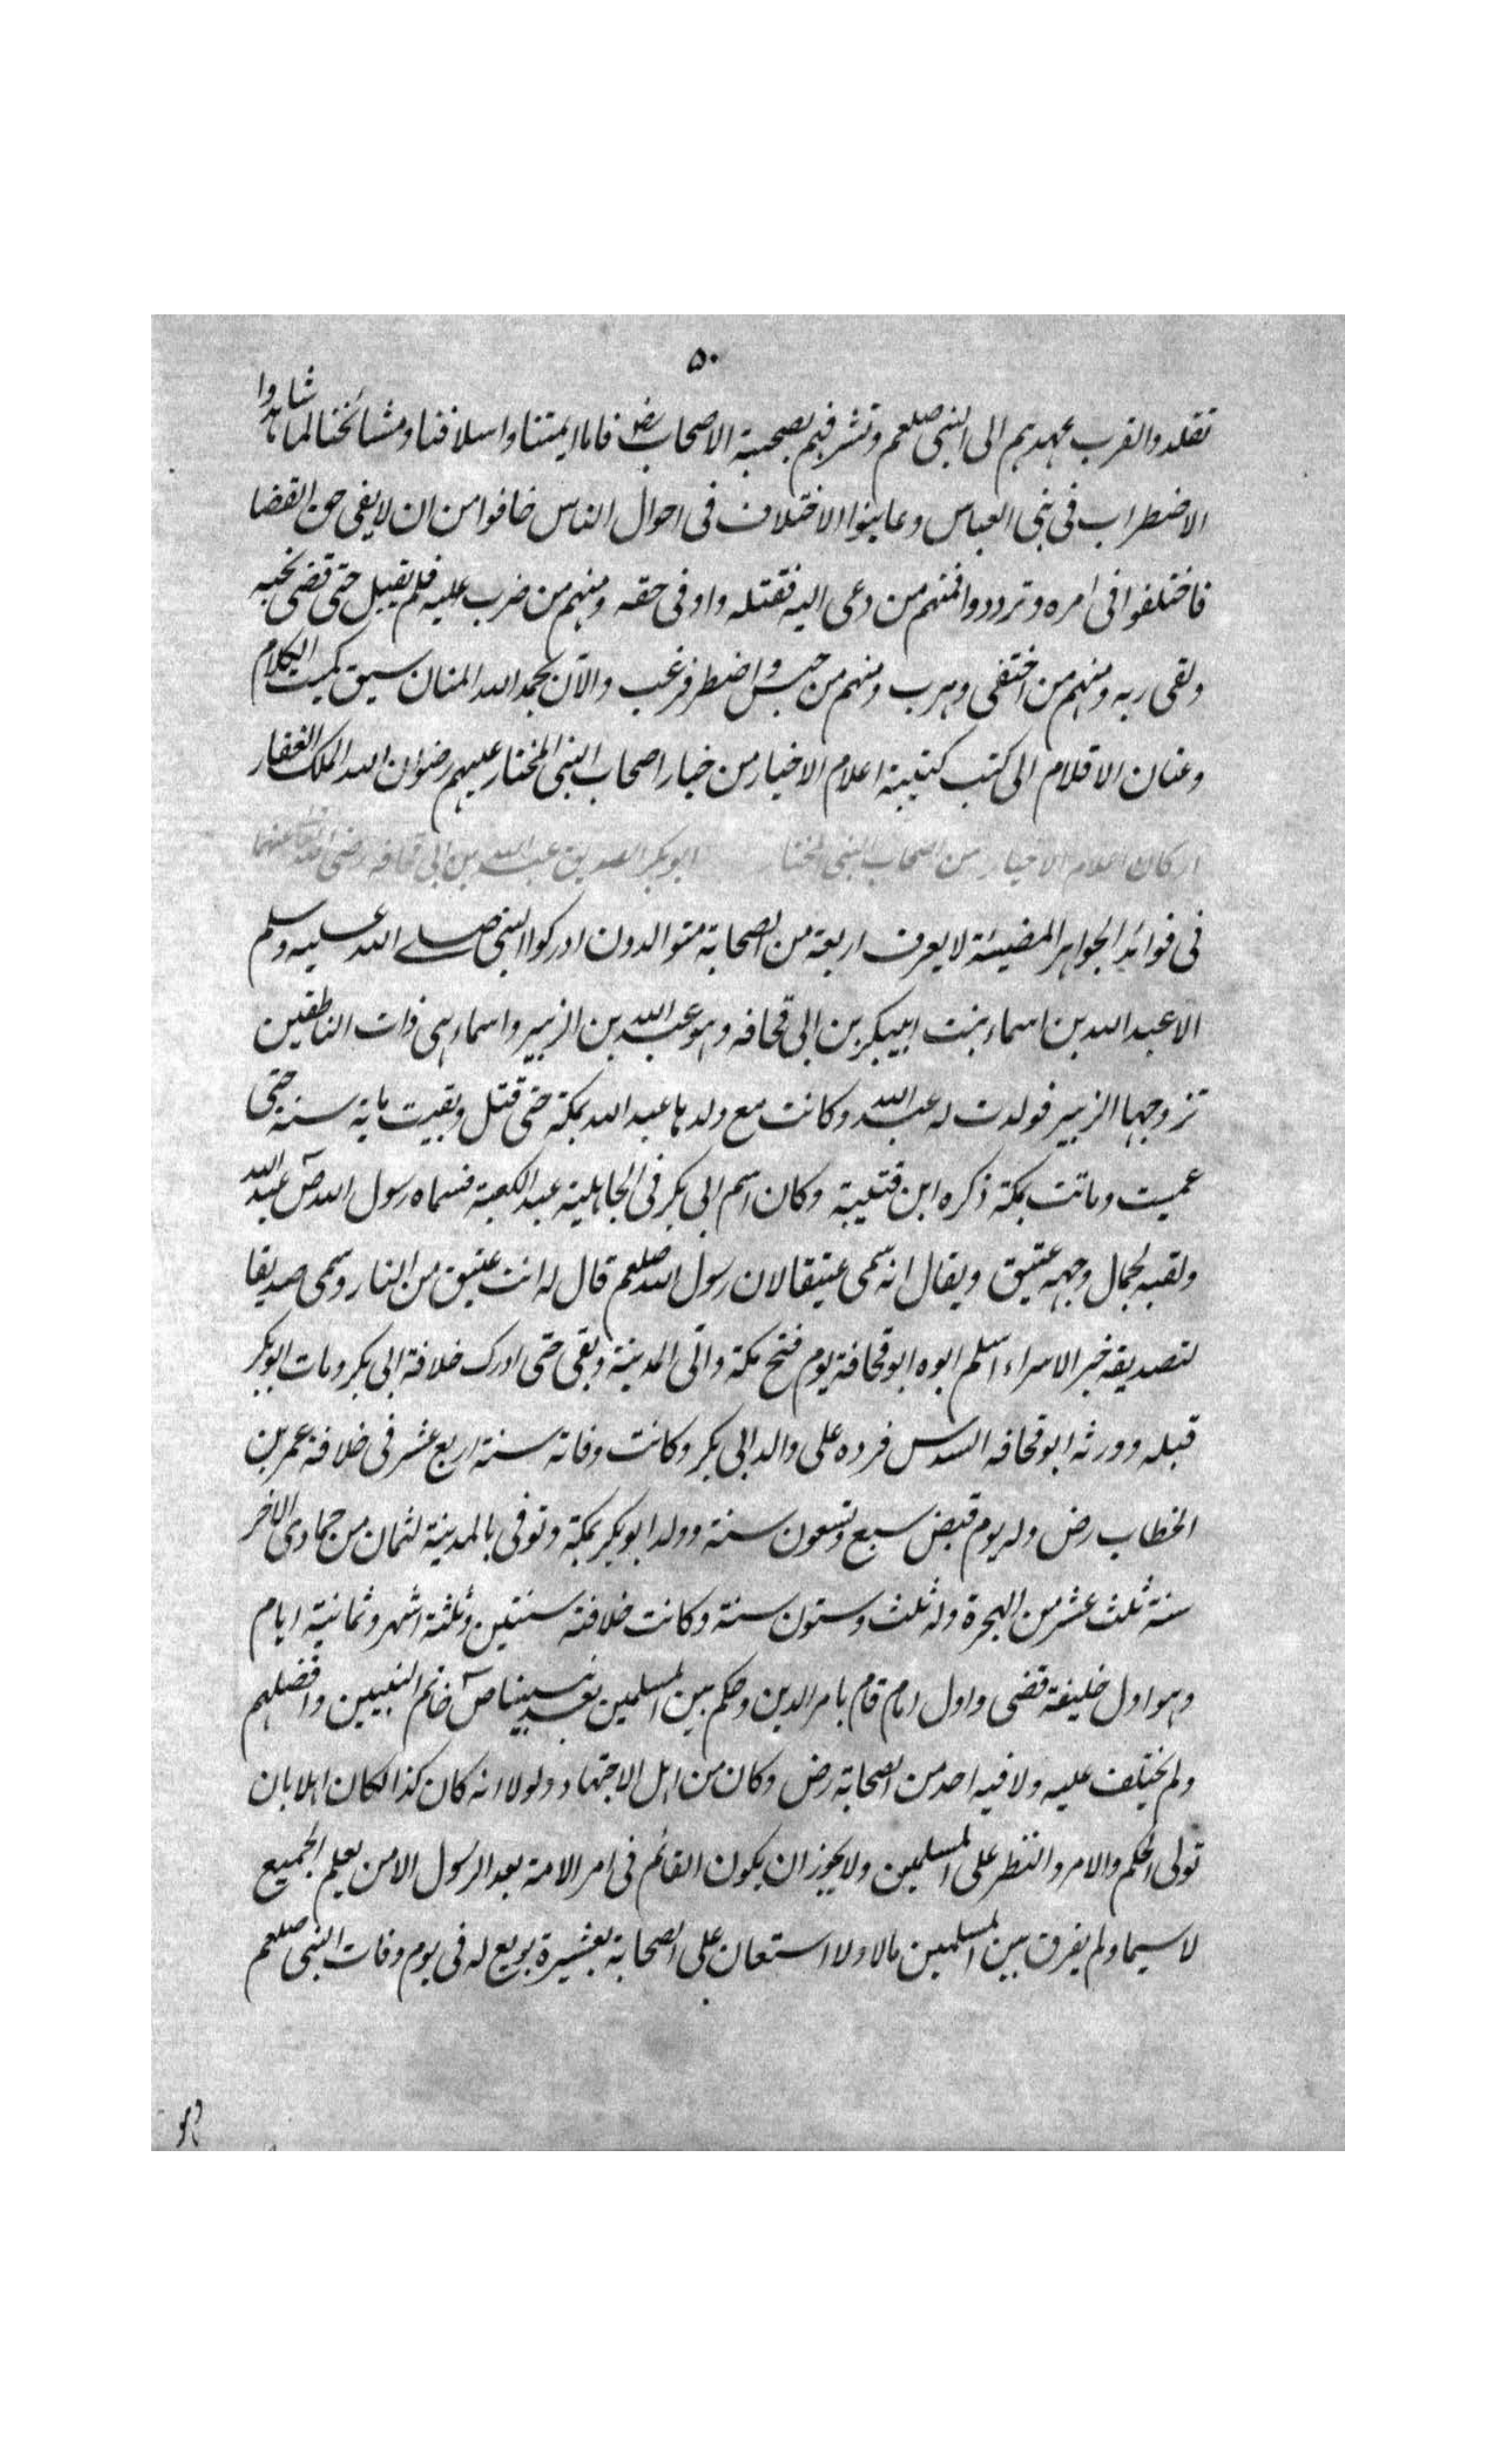 ٥٠
تقلدوا لقرب عهدهم الى النبى صلعم وتشرفهم بصحبة الاصحاب رض فاما ايمتنا واسلافنا ومشائخنا لما شاهدوا
الاضطراب فى بنى العباس وعاينوا الاختلاف فى احوال الناس خافوا من ان لا يفى حق القضا
فاختلفوا فى امره وترددوا فمنهم من دعى اليه فقتله واوفى حقه ومنهم من ضرب عليه فلم يقبل حتى قضى نحبه
ولقى ربه ومنهم من اختفى وهرب ومنهم من حبس واضطر فرغب والآن بحمد الله المنان سيق كميت الكلام
وعنان الاقلام الى كتب كتيبة اعلام الاخيار من خيار اصحاب النبى المختار عليهم رضوان الله الملك الغفار
اركان اعلام الاخيار من اصحاب النبى المختار ابو بكر الصديق عبد الله بن ابى قحافه رضى الله تعالى عنهما
فى فوائد الجواهر المضيئة لا يعرف اربعة من الصحابة متوالدون ادركوا النبى صلى الله عليه وسلم
الا عبد الله بن اسماء بنت ابيبكر بن ابى قحافه وهو عبد الله بن الزبير واسماء هى ذات النطاقين
تزوجها الزبير فولدت له عبد الله وكانت مع ولدها عبد الله بمكة حتى قتل وبقيت ماية سنة حتى
عميت وماتت بمكة ذكره ابن قتيبة وكان اسم ابى بكر فى الجاهلية عبد الكعبة فسماه رسول الله ص عبد الله
ولقبه لجمال وجهه عتيق ويقال انه سمى عتيقا لان رسول الله صلعم قال له انت عتيق من النار وسمى صديقا
لتصديقه خبر الاسراء اسلم ابوه ابو قحافة يوم فتح مكة واتى المدينة وبقى حتى ادرك خلافة ابى بكر ومات ابو بكر
قبله وورثه ابو قحافه السدس فرده على والد ابى بكر وكانت وفاته سنة اربع عشر فى خلافة عمر بن
الخطاب رض وله يوم قبض سبع وتسعون سنة وولد ابو بكر بمكة وتوفى بالمدينة لثمان من جمادى الاخر
سنة ثلث عشر من الهجرة وله ثلث وستون سنة وكانت خلافته سنتين وثلثة اشهر وثمانية ايام
وهو اول خليفة قضى واول امام قام بامر الدين وحكم بين المسلمين بعد نبينا ص خاتم النبيين وافضلهم
ولم يختلف عليه ولا فيه احد من الصحابة رض وكان من اهل الاجتهاد ولولا انه كان كذا لكان اهلا بان
تولى الحكم والامر والنظر على المسلمين ولا يجوز ان يكون القائم فى امر الامة بعد الرسول الا من يعلم الجميع
لا سيما ولم يفرق بين المسلمين مالا ولا استعان على الصحابة بعشيرة بويع له فى يوم وفات النبى صلعم
وهو